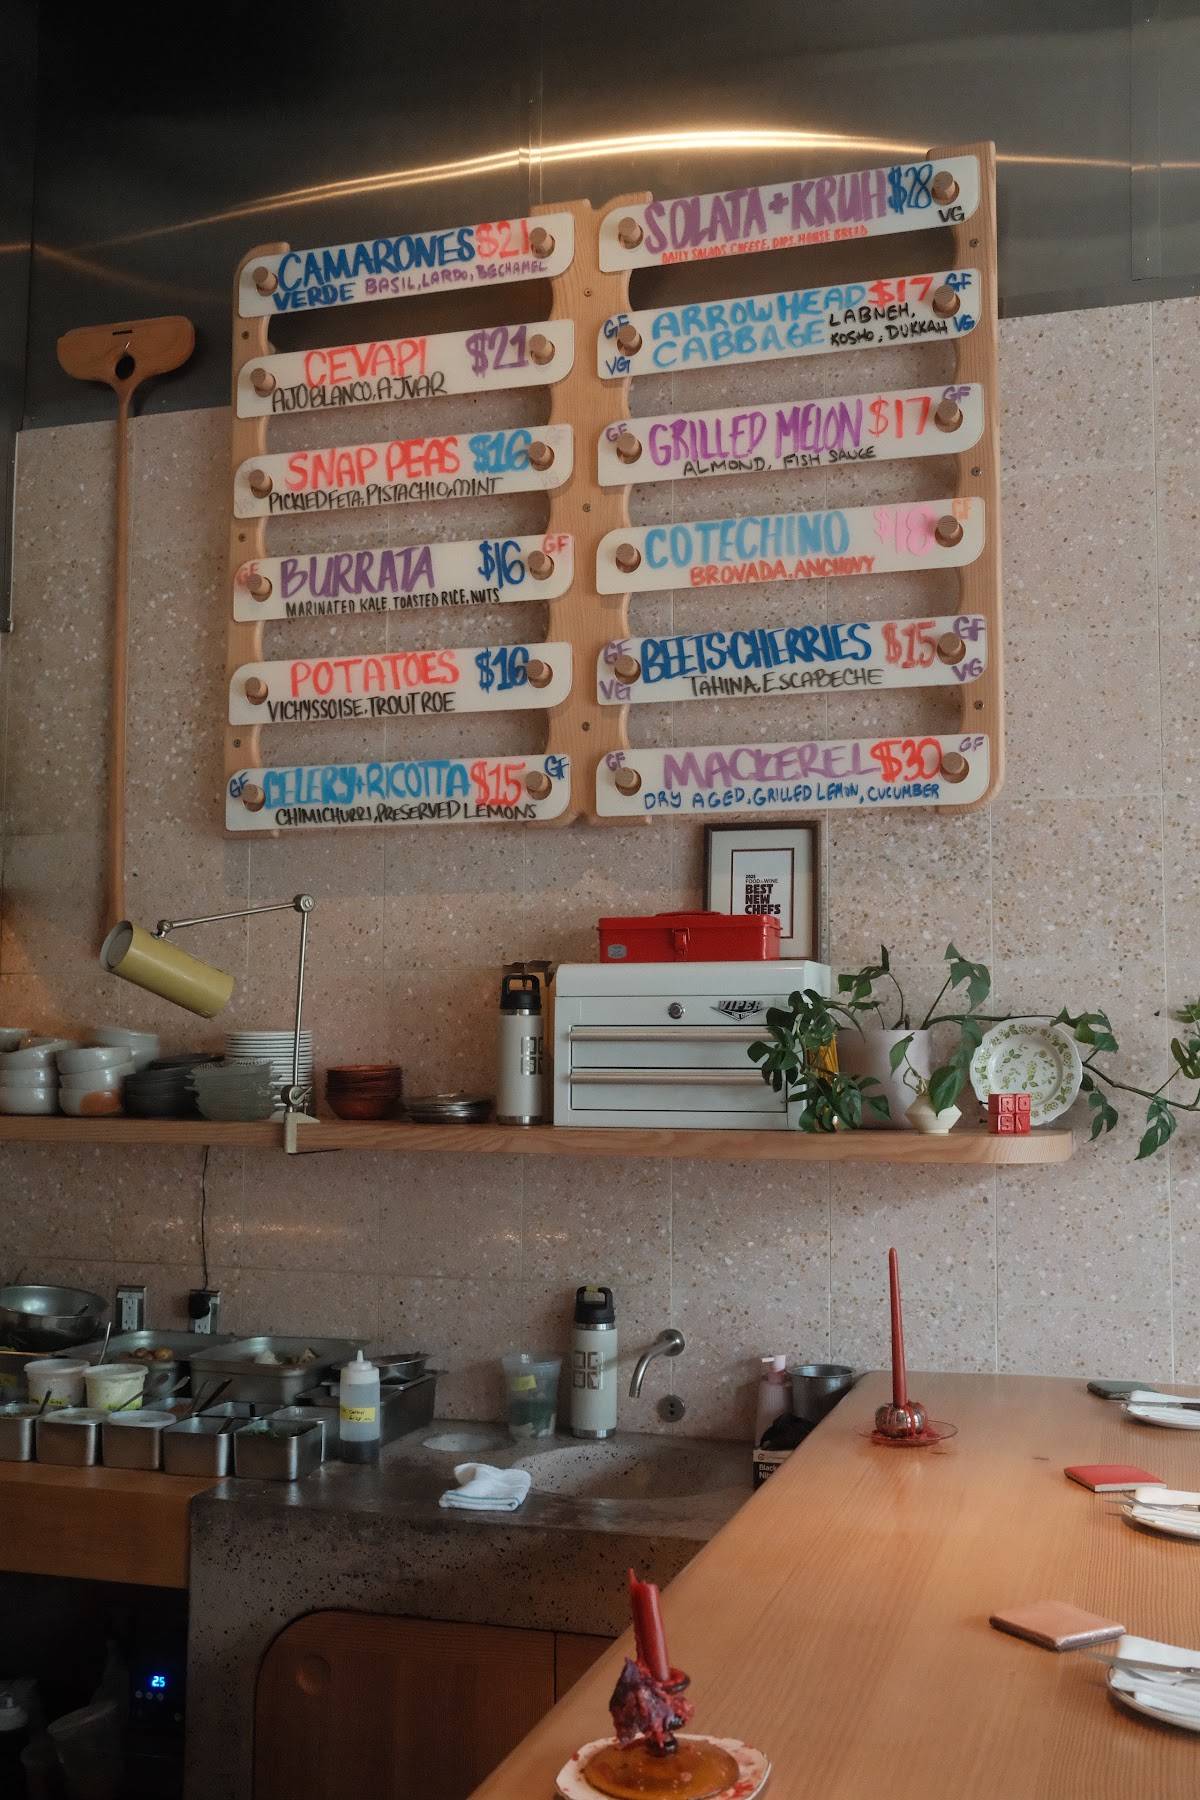 CAMARONES $21
VERDE BASIL, LARDO, BECHAMEL
CEVAPI $21
AJOBLANCO, AJVAR
SNAP PEAS $16
PICKLED FETA, PISTACHIO, MINT
GF BURRATA $16 GF
MARINATED KALE, TOASTED RICE, NUTS
POTATOES $16
VICHYSSOISE, TROUT ROE
GF CELERY+RICOTTA $15 GF
CHIMICHURRI, PRESERVED LEMONS
SOLATA+KRUH $28
DAILY SALADS, CHEESE, DIPS, HOUSE BREAD VG
GF ARROWHEAD $17 GF
VG CABBAGE LABNEH, VG
KOSHO, DUKKAH
GF GRILLED MELON $17 GF
ALMOND, FISH SAUCE
COTECHINO $18 GF
BROVADA, ANCHOVY
GF BEETS+CHERRIES $15 GF
VG TAHINA, ESCABECHE VG
GF MACKEREL $30 GF
DRY AGED, GRILLED LEMON, CUCUMBER
2025
FOOD & WINE
BEST
NEW
CHEFS
VIPER
RO
SN
Black
Nit
25